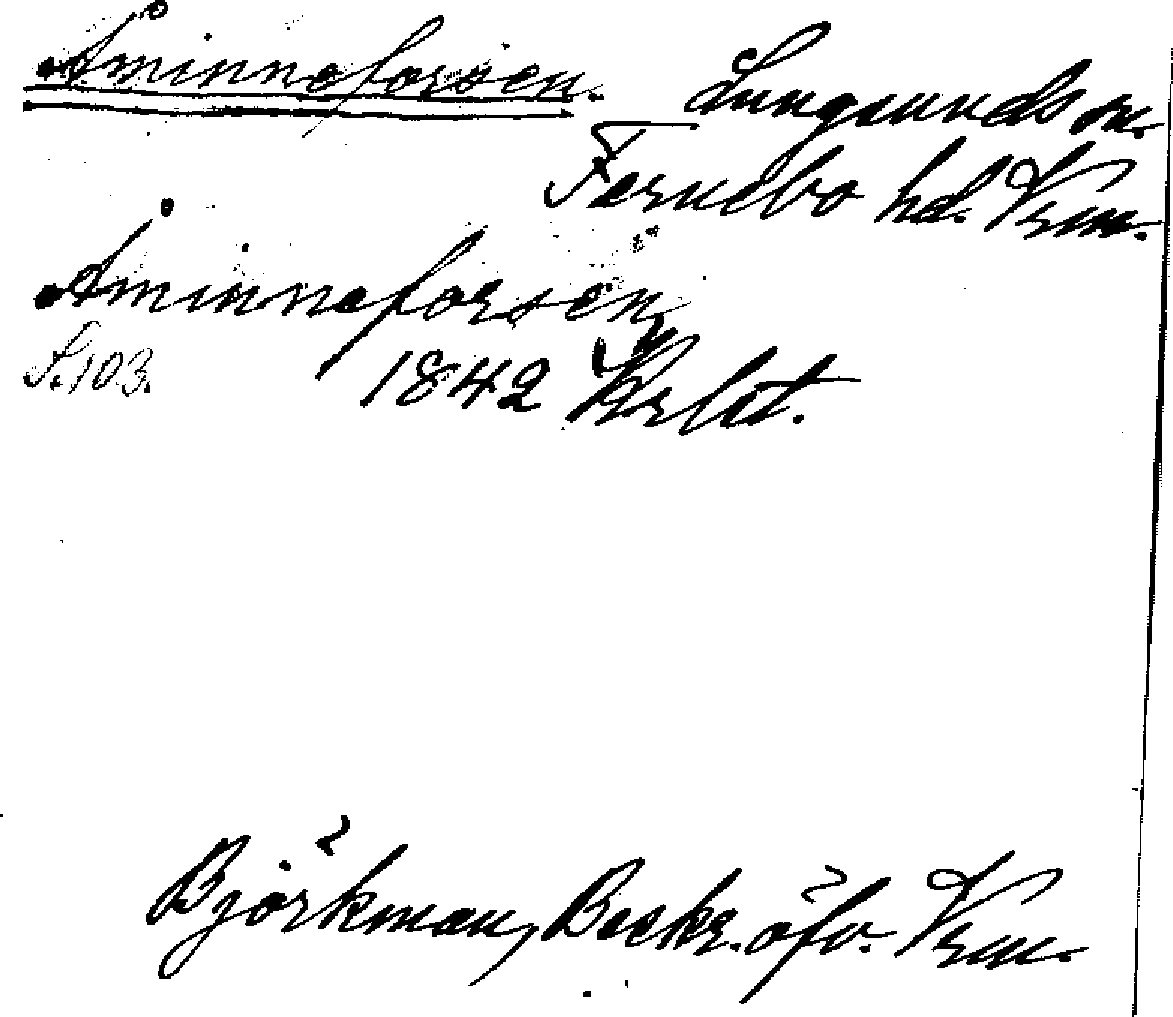 Åminneforsen. Lungsunds sn.
Fernebo hd. Vrm.
Åminneforsen
S. 103. 1842
Björkman, Beskr. öfv. Vrm.